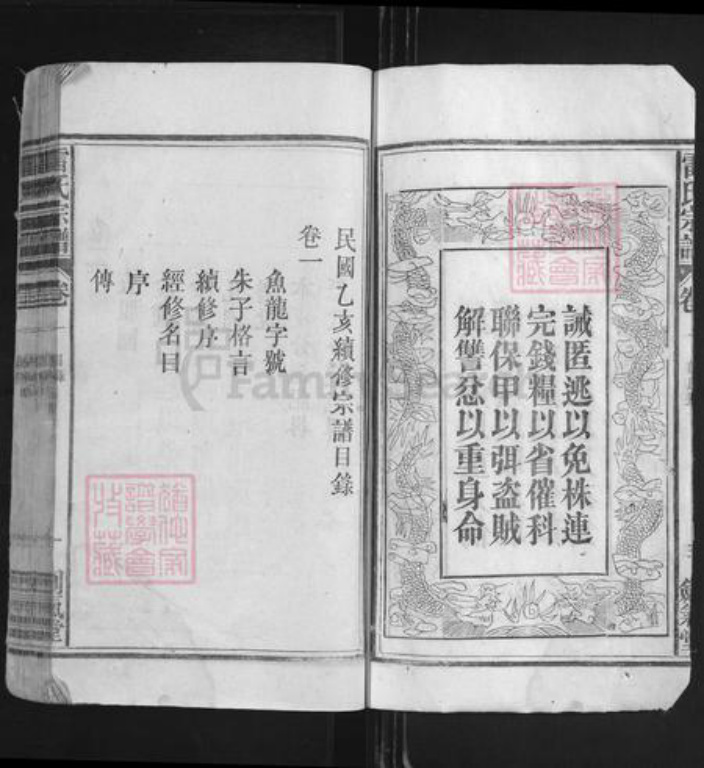 雷氏宗譜
卷一
誡匿逃以免株連
完錢糧以省催科
聯保甲以弭盜賊
解讐忿以重身命
民國乙亥續修宗譜目錄
卷一
魚龍字號
朱子格言
續修序
經修名目
序
傳
氏宗譜
卷一
FamilySearch